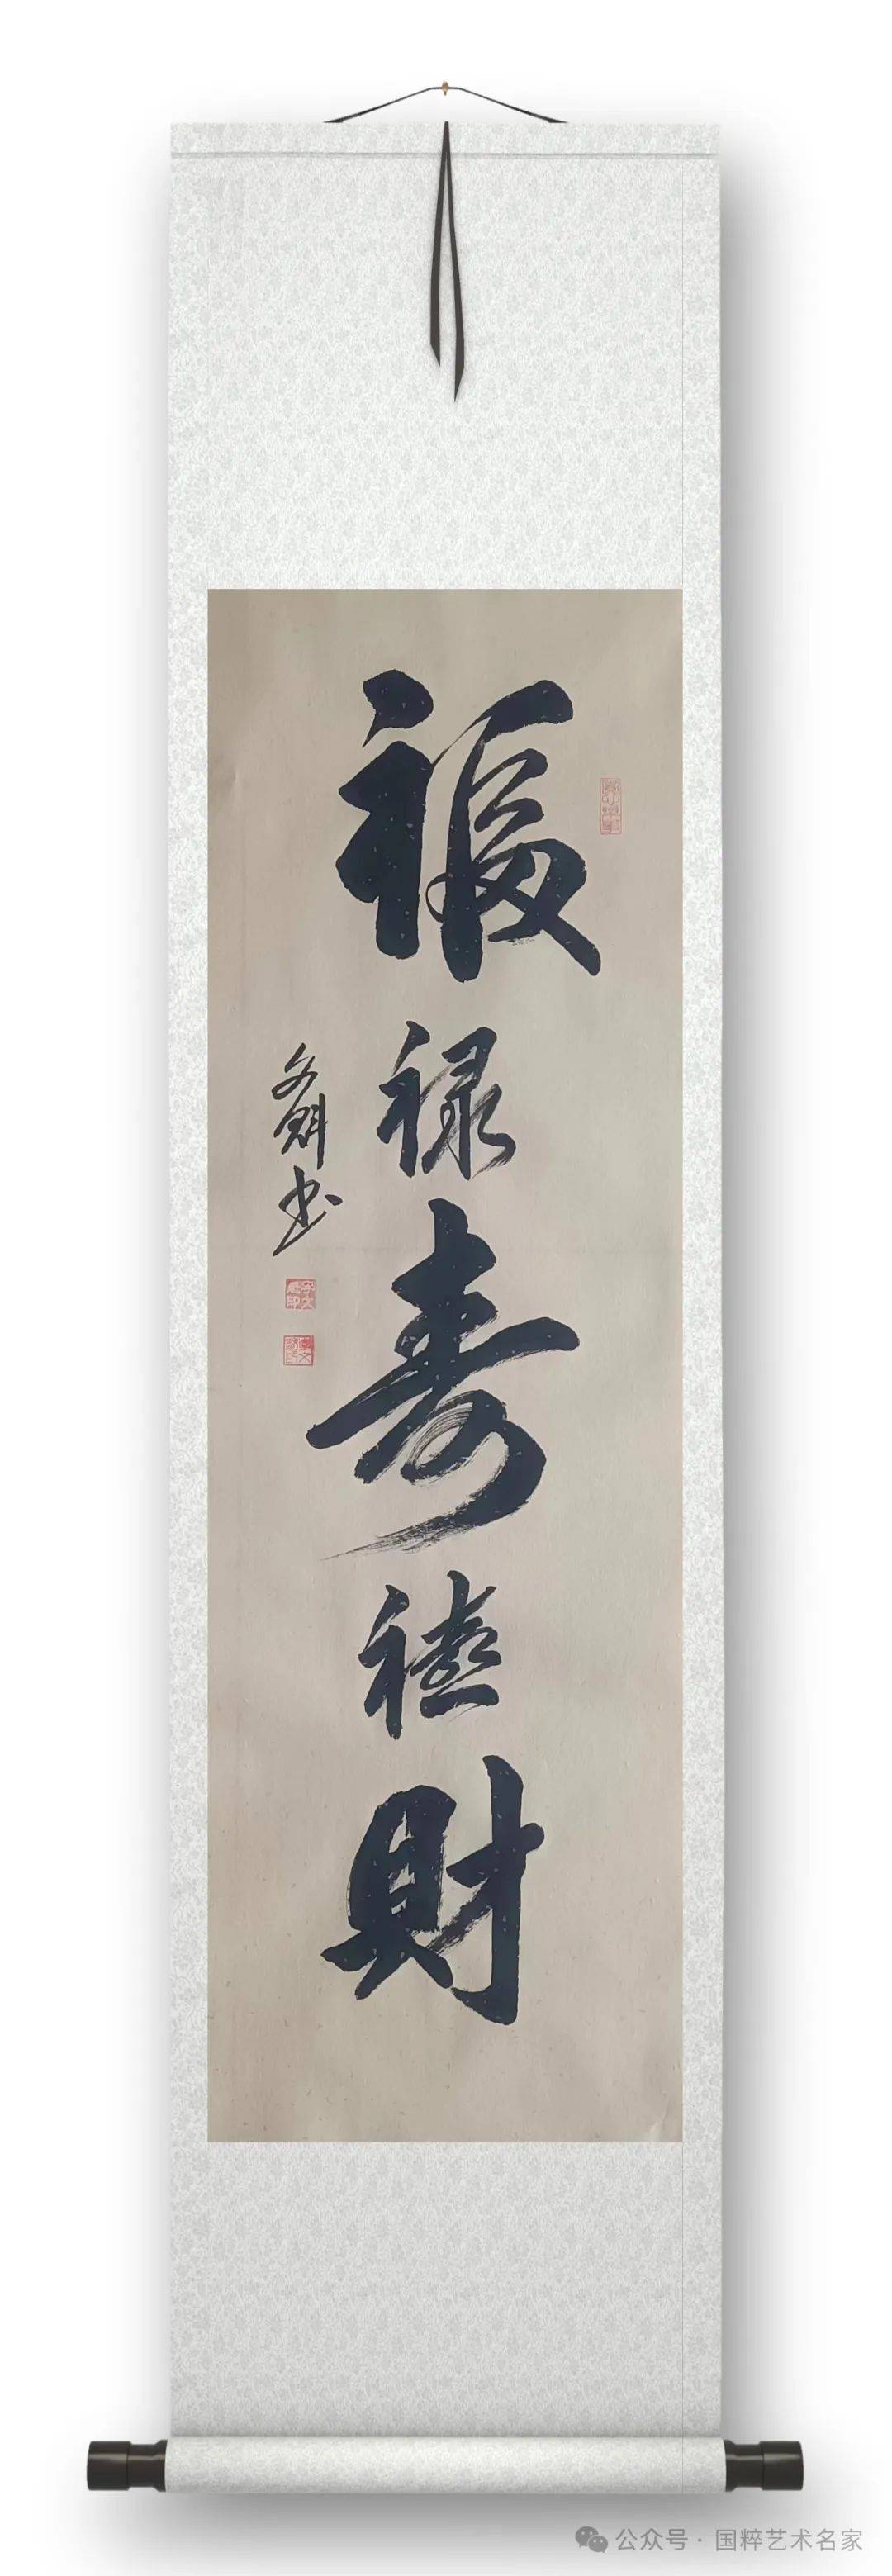 福禄寿禧財
文魁书
公众号·国粹艺术名家